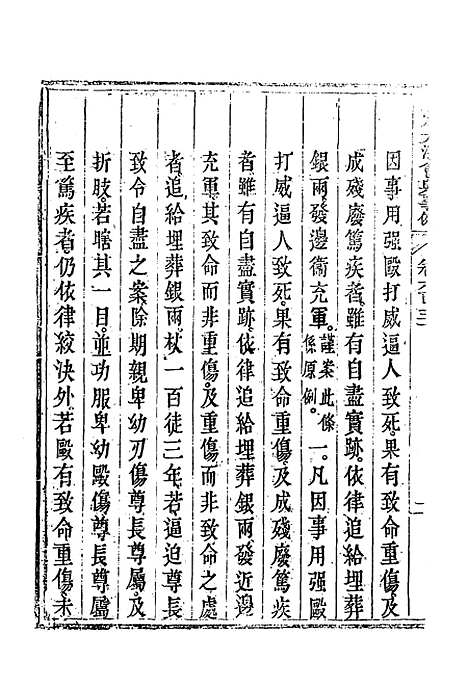 因事用强毆打威逼人致死果有致命重傷及
成殘廢篤疾者雖有自盡實跡依律追給埋葬
銀兩發邊衞充軍謹案此條係原例一凡因事用强毆
打威逼人致死果有致命重傷及成殘廢篤疾
者雖有自盡實跡依律追給埋葬銀兩發近邊
充軍其致命而非重傷及重傷而非致命之處
者追給埋葬銀兩杖一百徒三年若逼迫尊長
致令自盡之案除期親卑幼刃傷尊長尊屬及
折肢若瞎其一目並功服卑幼毆傷尊長尊屬
至篤疾者仍依律絞決外若毆有致命重傷未